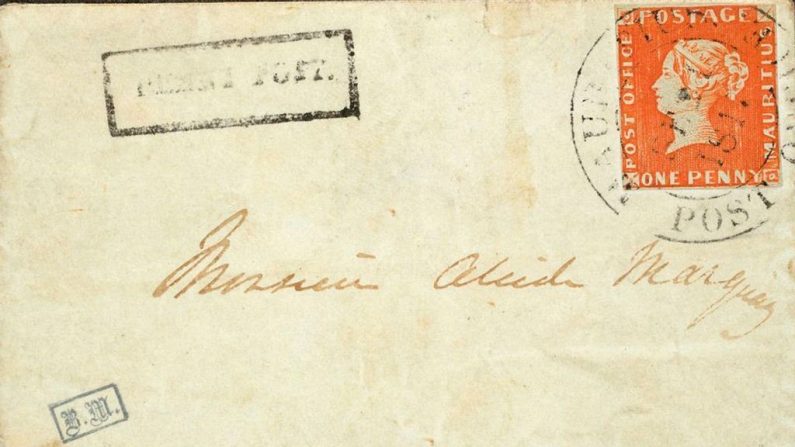 PENNY POST.
POSTAGE
POST OFFICE
MAURITIUS
ONE PENNY
MAURITIUS
POST
Monsieur Alcide Marquay
B.M.